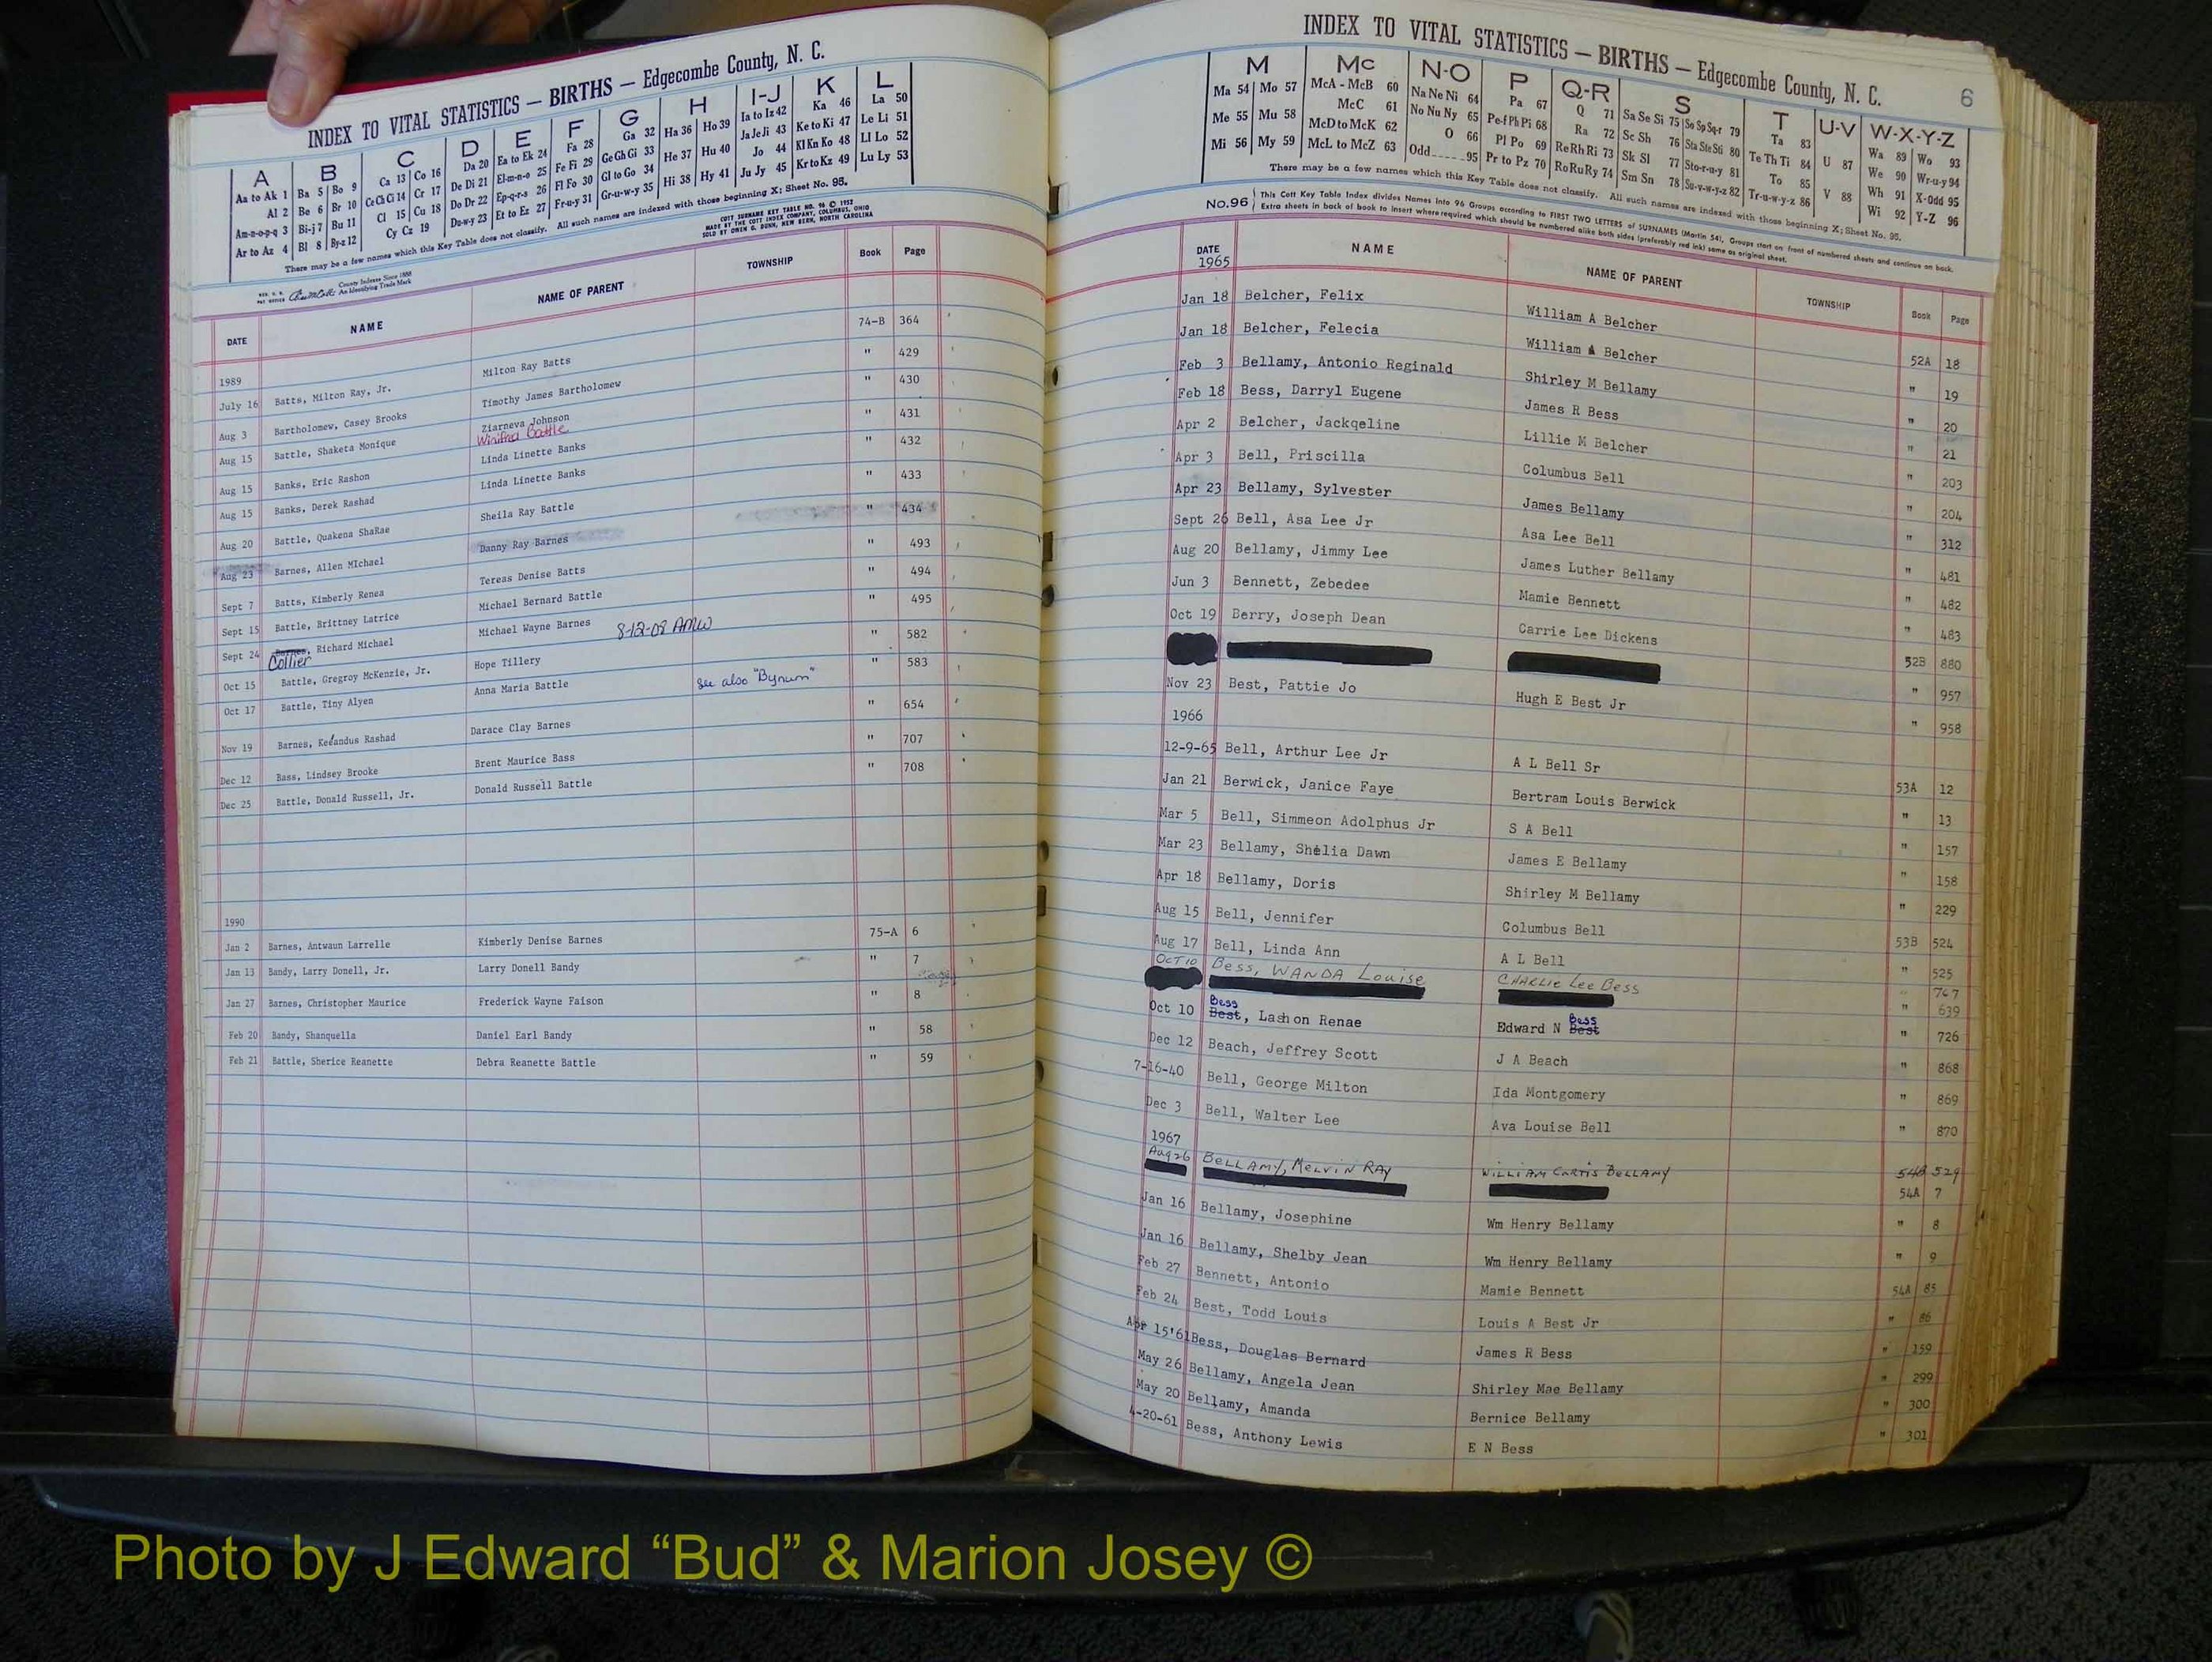 INDEX TO VITAL STATISTICS — BIRTHS — Edgecombe County, N. C.
A B C D E F G H I-J K L
Aa to Ak 1 Ba 5 Bo 9 Ca 13 Co 16 Da 20 Ea to Ek 24 Fa 28 Ga 32 Ha 36 Ho 39 Ia to Iz 42 Ka 46 La 50
Al 2 Be 6 Br 10 Ce Ch Ci 14 Cr 17 De Di 21 El-m-n-o 25 Fe Fi 29 Ge Gh Gi 33 He 37 Hu 40 Ja Je Ji 43 Ke to Ki 47 Le Li 51
Am-n-o-p-q 3 Bi-j 7 Bu 11 Cl 15 Cu 18 Do Dr 22 Ep-q-r-s 26 Fl Fo 30 Gl to Go 34 Hi 38 Hy 41 Jo 44 Kl Kn Ko 48 Ll Lo 52
Ar to Az 4 Bl 8 By-z 12 Cy Cz 19 Du-w-y 23 Et to Ez 27 Fr-u-y 31 Gr-u-w-y 35 Ju Jy 45 Kr to Kz 49 Lu Ly 53
There may be a few names which this Key Table does not classify. All such names are indexed with those beginning X; Sheet No. 95.
COTT SURNAME KEY TABLE NO. 96 © 1952
MADE BY THE COTT INDEX COMPANY, COLUMBUS, OHIO
SOLD BY OWEN G. DUNN, NEW BERN, NORTH CAROLINA
County Indexes Since 1888
An Identifying Trade Mark
DATE NAME NAME OF PARENT TOWNSHIP Book Page
1989
July 16 Batts, Milton Ray, Jr. Milton Ray Batts 74-B 364
Aug 3 Bartholomew, Casey Brooks Timothy James Bartholomew " 429
Aug 15 Battle, Shaketa Monique Ziarneva Johnson " 430
Winifred Battle
Aug 15 Banks, Eric Rashon Linda Linette Banks " 431
Aug 15 Banks, Derek Rashad Linda Linette Banks " 432
Aug 20 Battle, Quakena ShaRae Sheila Ray Battle " 433
Aug 23 Barnes, Allen MIchael Danny Ray Barnes " 434
Sept 7 Batts, Kimberly Renea Tereas Denise Batts " 493
Sept 15 Battle, Brittney Latrice Michael Bernard Battle " 494
Sept 24 Barnes, Richard Michael Michael Wayne Barnes 8-12-08 AMW " 495
Collier
Oct 15 Battle, Gregroy McKenzie, Jr. Hope Tillery " 582
Oct 17 Battle, Tiny Alyen Anna Maria Battle See also "Bynum" " 583
Nov 19 Barnes, Keeandus Rashad Darace Clay Barnes " 654
Dec 12 Bass, Lindsey Brooke Brent Maurice Bass " 707
Dec 25 Battle, Donald Russell, Jr. Donald Russell Battle " 708
1990
Jan 2 Barnes, Antwaun Larrelle Kimberly Denise Barnes 75-A 6
Jan 13 Bandy, Larry Donell, Jr. Larry Donell Bandy " 7
Jan 27 Barnes, Christopher Maurice Frederick Wayne Faison " 8
Feb 20 Bandy, Shanquella Daniel Earl Bandy " 58
Feb 21 Battle, Sherice Reanette Debra Reanette Battle " 59
INDEX TO VITAL STATISTICS — BIRTHS — Edgecombe County, N. C. 6
M Mc N-O P Q-R S T U-V W-X-Y-Z
Ma 54 Mo 57 McA - McB 60 Na Ne Ni 64 Pa 67 Q 71 Sa Se Si 75 So Sp Sq-r 79 Ta 83 Wa 89 Wo 93
Me 55 Mu 58 McC 61 No Nu Ny 65 Pe-f Ph Pi 68 Ra 72 Sc Sh 76 Sta Ste Sti 80 Te Th Ti 84 U 87 We 90 Wr-u-y 94
Mi 56 My 59 McD to McK 62 O 66 Pl Po 69 Re Rh Ri 73 Sk Sl 77 Sto-r-u-y 81 To 85 V 88 Wh 91 X-Odd 95
McL to McZ 63 Odd 95 Pr to Pz 70 Ro Ru Ry 74 Sm Sn 78 Su-v-w-y-z 82 Tr-u-w-y-z 86 Wi 92 Y-Z 96
There may be a few names which this Key Table does not classify. All such names are indexed with those beginning X; Sheet No. 95.
No. 96 This Cott Key Table Index divides Names into 96 Groups according to FIRST TWO LETTERS of SURNAMES (Martin 54). Groups start on front of numbered sheets and continue on back.
Extra sheets in back of book to insert where required which should be numbered alike both sides (preferably red ink) same as original sheet.
DATE NAME NAME OF PARENT TOWNSHIP Book Page
1965
Jan 18 Belcher, Felix William A Belcher 52A 18
Jan 18 Belcher, Felecia William A Belcher " 19
Feb 3 Bellamy, Antonio Reginald Shirley M Bellamy " 20
Feb 18 Bess, Darryl Eugene James R Bess " 21
Apr 2 Belcher, Jackqeline Lillie M Belcher " 203
Apr 3 Bell, Priscilla Columbus Bell " 204
Apr 23 Bellamy, Sylvester James Bellamy " 312
Sept 26 Bell, Asa Lee Jr Asa Lee Bell " 481
Aug 20 Bellamy, Jimmy Lee James Luther Bellamy " 482
Jun 3 Bennett, Zebedee Mamie Bennett " 483
Oct 19 Berry, Joseph Dean Carrie Lee Dickens 52B 880
" 957
Nov 23 Best, Pattie Jo Hugh E Best Jr " 958
1966
12-9-65 Bell, Arthur Lee Jr A L Bell Sr 53A 12
Jan 21 Berwick, Janice Faye Bertram Louis Berwick " 13
Mar 5 Bell, Simmeon Adolphus Jr S A Bell " 157
Mar 23 Bellamy, Shelia Dawn James E Bellamy " 158
Apr 18 Bellamy, Doris Shirley M Bellamy " 229
Aug 15 Bell, Jennifer Columbus Bell 53B 524
Aug 17 Bell, Linda Ann A L Bell " 525
OCT 10 Bess, WANDA Louise CHARLIE Lee Bess " 767
" 639
Bess Bess
Oct 10 Best, Lashon Renae Edward N Best " 726
Dec 12 Beach, Jeffrey Scott J A Beach " 868
7-16-40 Bell, George Milton Ida Montgomery " 869
Dec 3 Bell, Walter Lee Ava Louise Bell " 870
1967
Aug 26 BELLAMY, MELVIN RAY WILLIAM CURTIS BELLAMY 54B 529
54A 7
Jan 16 Bellamy, Josephine Wm Henry Bellamy " 8
Jan 16 Bellamy, Shelby Jean Wm Henry Bellamy " 9
Feb 27 Bennett, Antonio Mamie Bennett 54A 85
Feb 24 Best, Todd Louis Louis A Best Jr " 86
Apr 15'61 Bess, Douglas Bernard James R Bess " 159
May 26 Bellamy, Angela Jean Shirley Mae Bellamy " 299
May 20 Bellamy, Amanda Bernice Bellamy " 300
4-20-61 Bess, Anthony Lewis E N Bess " 301
Photo by J Edward “Bud” & Marion Josey ©